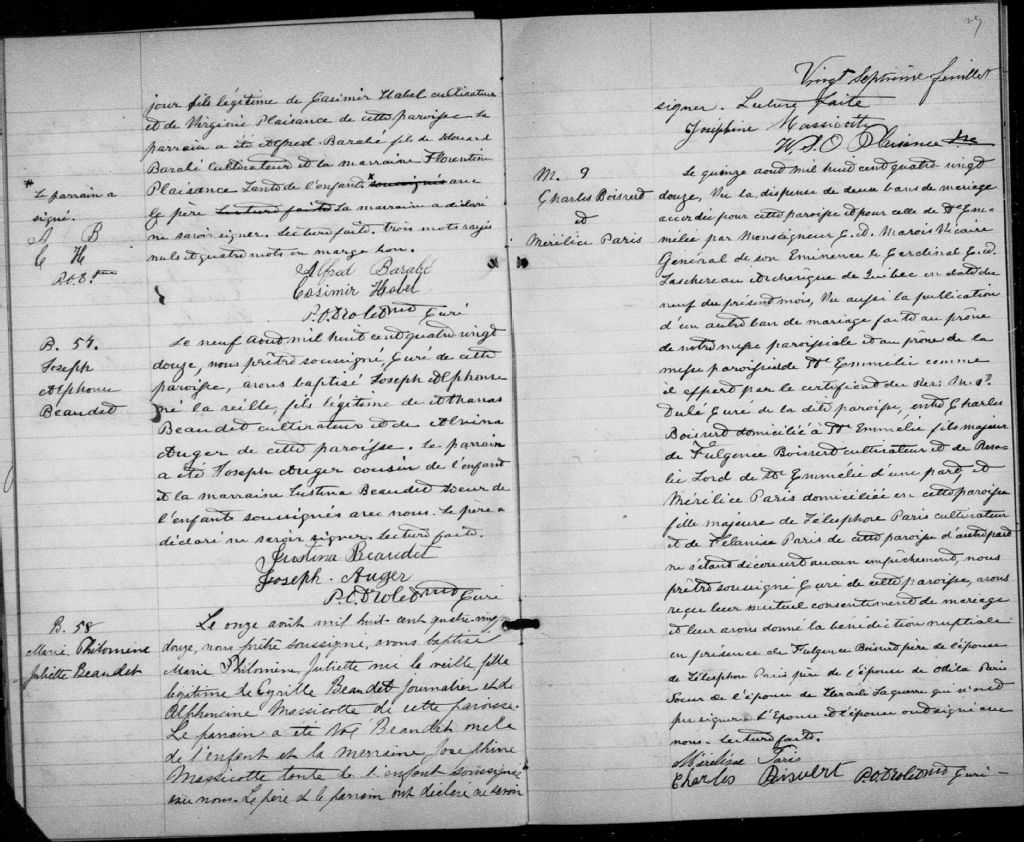 jour fils légitime de Casimir Habel cultivateur
et de Virginie Plaisance de cette paroisse Le
parrain a été Alfred Barabé fils de Edouard
Barabé Cultivateur et la marraine Florentine
Plaisance tante de l'enfant * soussignés avec
le père Lecture faite La marraine a déclaré
ne savoir signer. Lecture faite. trois mots rayés
nuls et quatre mots en marge bon.
Alfred Barabé
Casimir Habel
P.O. Drolet Ptre Curé
* Le parrain a
signé.
A B
C H
B. 57.
Joseph
Alphonse
Beaudet
Le neuf Aout mil huit cent quatre vingt
douze, nous prêtre soussigné, Curé de cette
paroisse, avons baptisé Joseph Alphonse
né la veille, fils légitime de Athanas
Beaudet cultivateur et de Alvina
Auger de cette paroisse. Le parrain
a été Joseph Auger cousin de l'enfant
et la marraine Justina Beaudet Soeur de
l'enfant soussignés avec nous. Le père a
déclaré ne savoir signer. Lecture faite.
Justina Beaudet
Joseph. Auger
P.O. Drolet Ptre Curé
B. 58
Marie Philomene
Juliette Beaudet
Le onze août mil huit cent quatre-vingt
douze, nous prêtre soussigné, avons baptisé
Marie Philomène Juliette née la veille, fille
légitime de Cyrille Beaudet Journalier et de
Alphonsine Massicotte de cette paroisse.
Le parrain a été Noé Beaudet oncle
de l'enfant et la marraine Josephine
Massicotte tante de l'enfant soussignée
avec nous. Le père et le parrain ont déclaré ne savoir
27
Vingt Septième feuillet
signer. Lecture faite
Joséphine Massicotte
Plaisance Ptre
M. 9
Charles Boisvert
et
Mérélice Paris
Le quinze aout mil huit cent quatre vingt
douze, Vu la dispense de deux bans de mariage
accordée pour cette paroisse et pour celle de Ste Em-
mélie par Monseigneur C. A. Marois Vicaire
Général de son Eminence le Cardinal E. A.
Taschereau Archevêque de Québec en date du
neuf du présent mois, Vu aussi la publication
d'un autre ban de mariage faite au prône
de notre messe paroissiale et au prone de la
messe paroissiale de Ste Emmélie comme
il appert par le certificat du Rev. M.
Dubé Curé de la dite paroisse, entre Charles
Boisvert domicilié à Ste Emmélie fils majeur
de Fulgence Boisvert cultivateur et de Rosa-
lie Lord de Ste Emmélie d'une part, et
Mérélice Paris domiciliée en cette paroisse
fille majeure de Télesphore Paris cultivateur
et de Félanise Paris de cette paroisse d'autre part
ne s'étant découvert aucun empêchement, nous
prêtre soussigné Curé de cette paroisse, avons
reçu leur mutuel consentement de mariage
et leur avons donné la bénédiction nuptiale
en présence de Fulgence Boisvert père de l'époux
de Télesphore Paris père de l'épouse de Odila Paris
Soeur de l'épouse de Hercule Laguerre qui n'ont
pu signer. L'Epoux et l'épouse ont signé avec
nous. Lecture faite.
Mérélise Paris
Charles Boisvert P.O. Drolet Ptre Curé